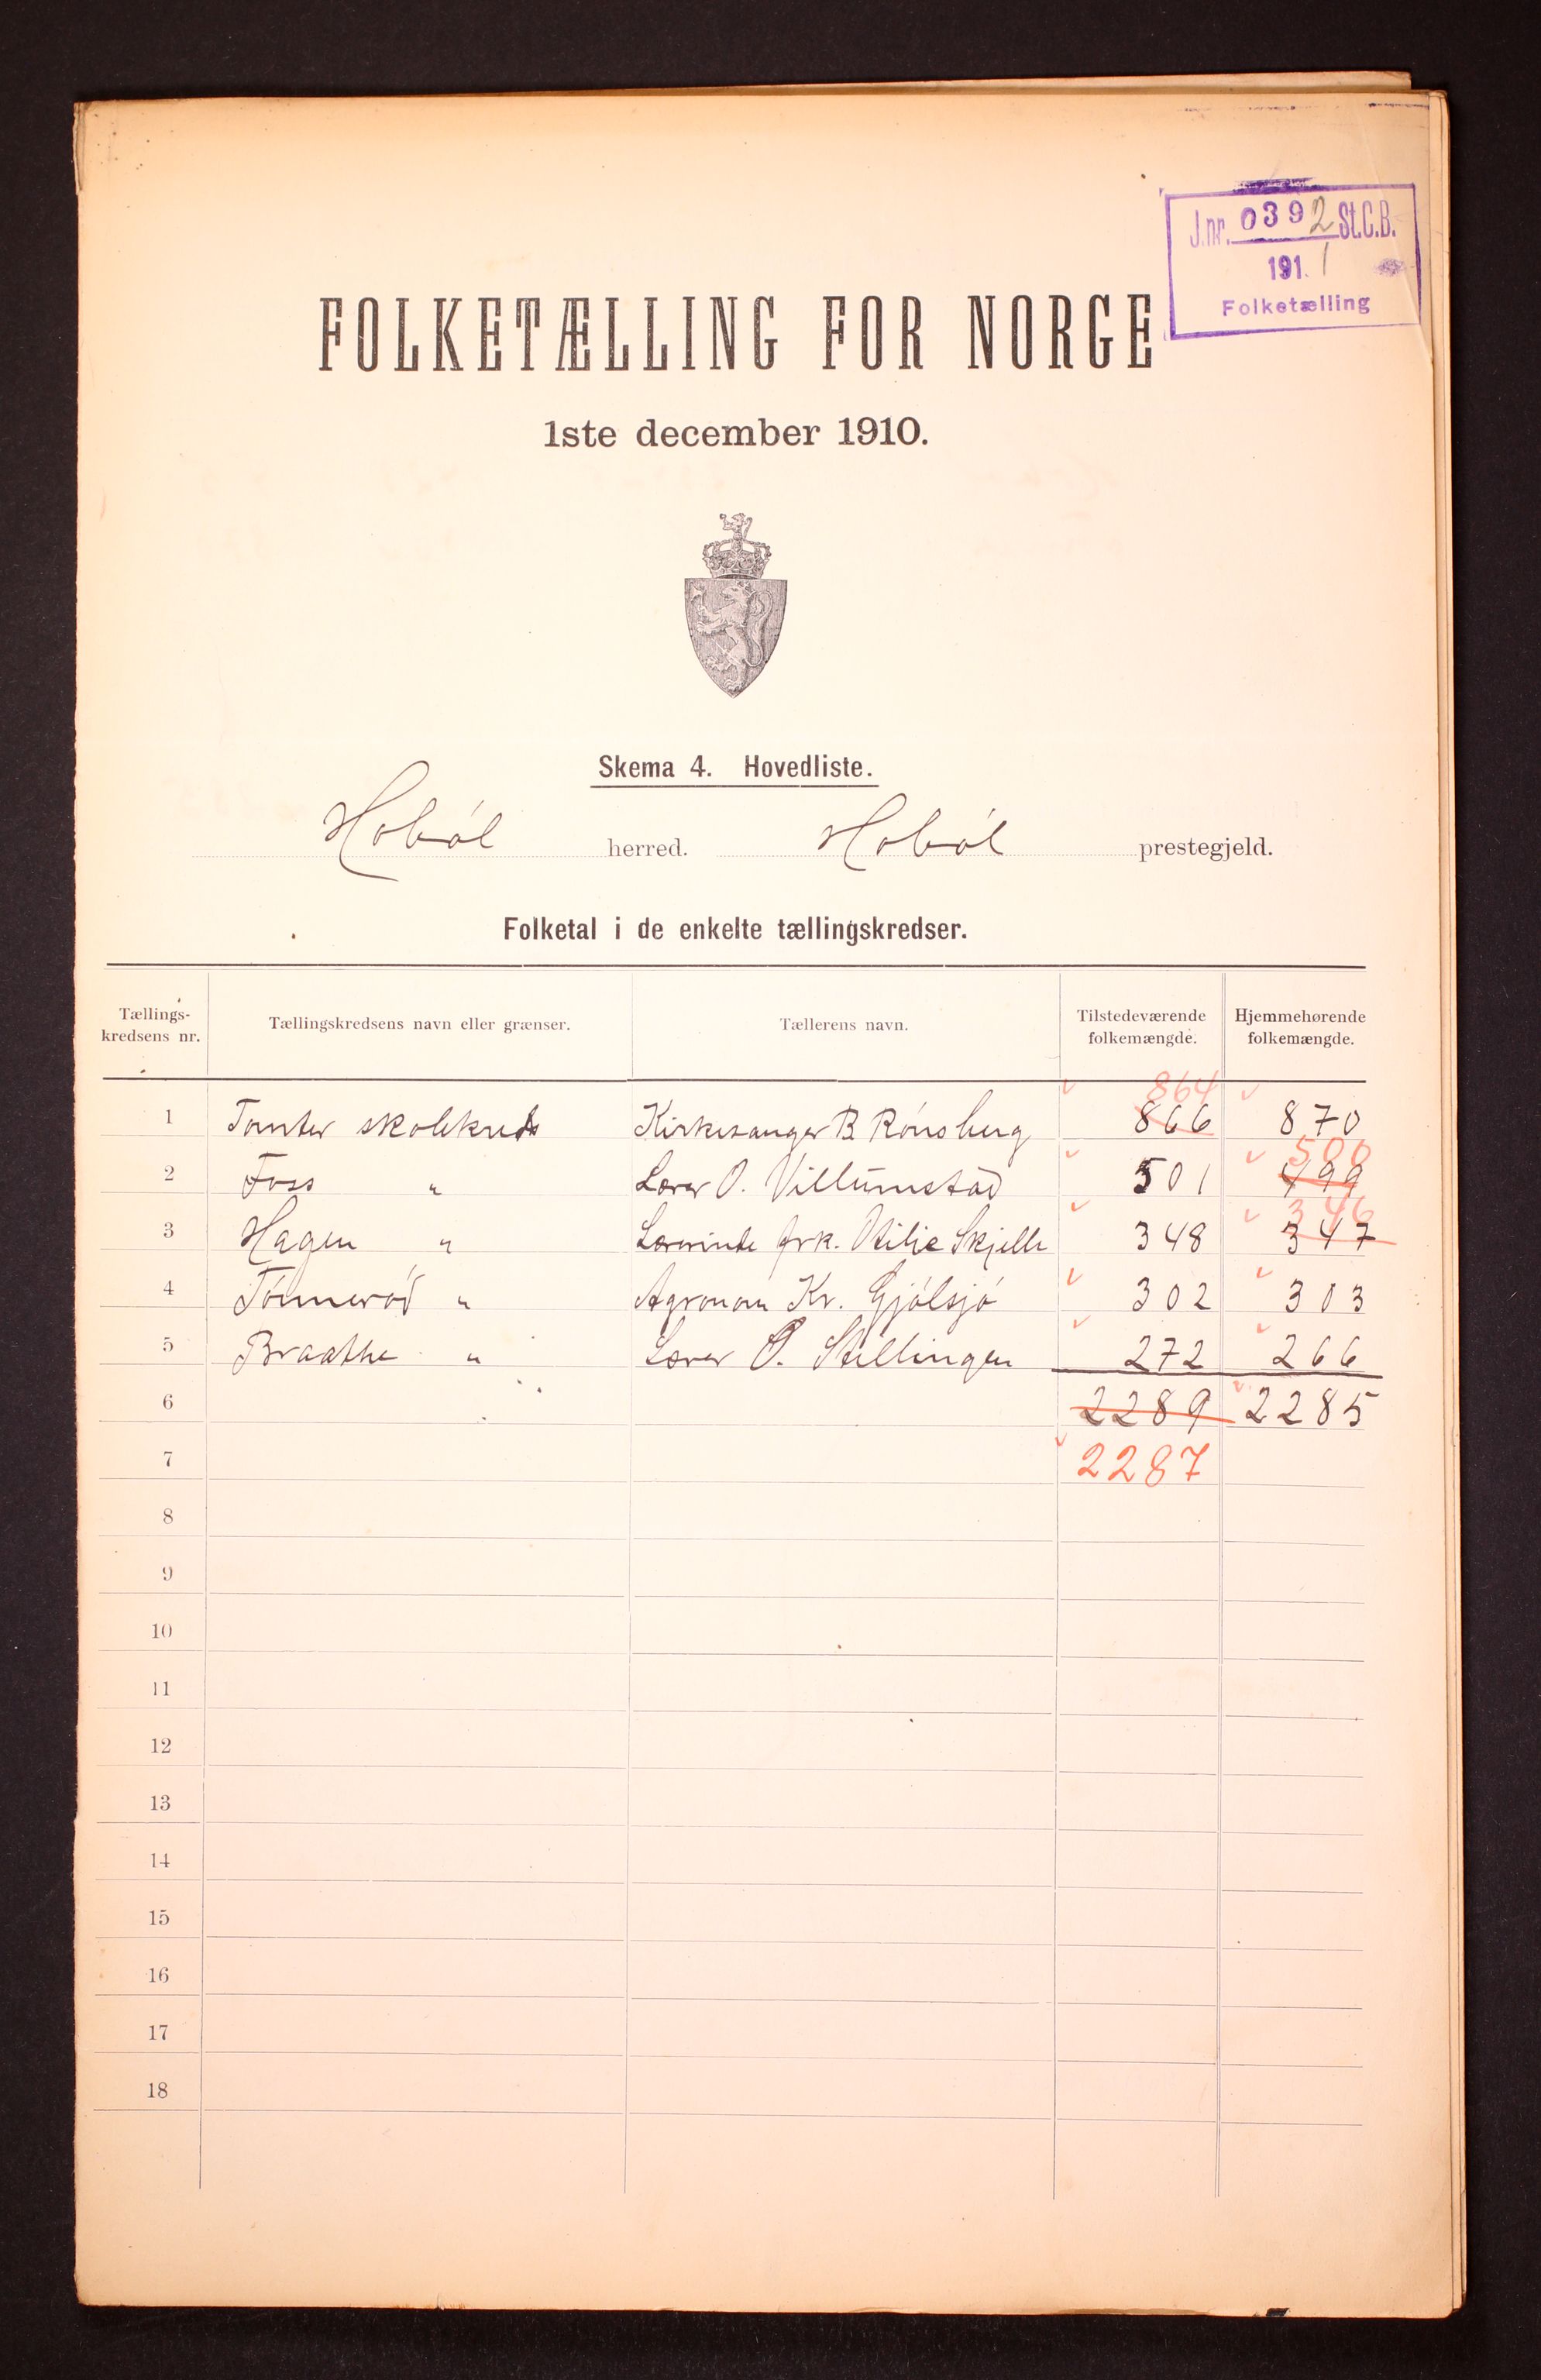 J.nr. 0392 St.C.B.
191.1
Folketælling
FOLKETÆLLING FOR NORGE
1ste december 1910.
Skema 4. Hovedliste.
Hobøl herred. Hobøl prestegjeld.
Folketal i de enkelte tællingskredser.
Tællings-kredsens nr. Tællingskredsens navn eller grænser. Tællerens navn. Tilstedeværende folkemængde. Hjemmehørende folkemængde.
864
1 Tomter skolekreds Kirkesanger B. Rønsberg 866 870
500
2 Foss " Lærer O. Villumstad 501 499
346
3 Hagen " Lærerinde frk. Otilie Skjelle 348 347
4 Tønnerød " Agronom Kr. Gjølsjø 302 303
5 Braathe " Lærer O. Stillingen 272 266
6 2289 2285
7 2287
8
9
10
11
12
13
14
15
16
17
18